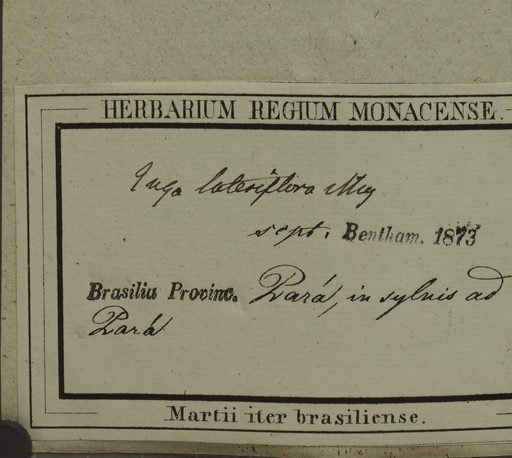 HERBARIUM REGIUM MONACENSE.
Inga lateriflora Miq
scpt. Bentham. 1873
Brasilia Provinc. Pará, in sylvis ad
Pará
Martii iter brasiliense.